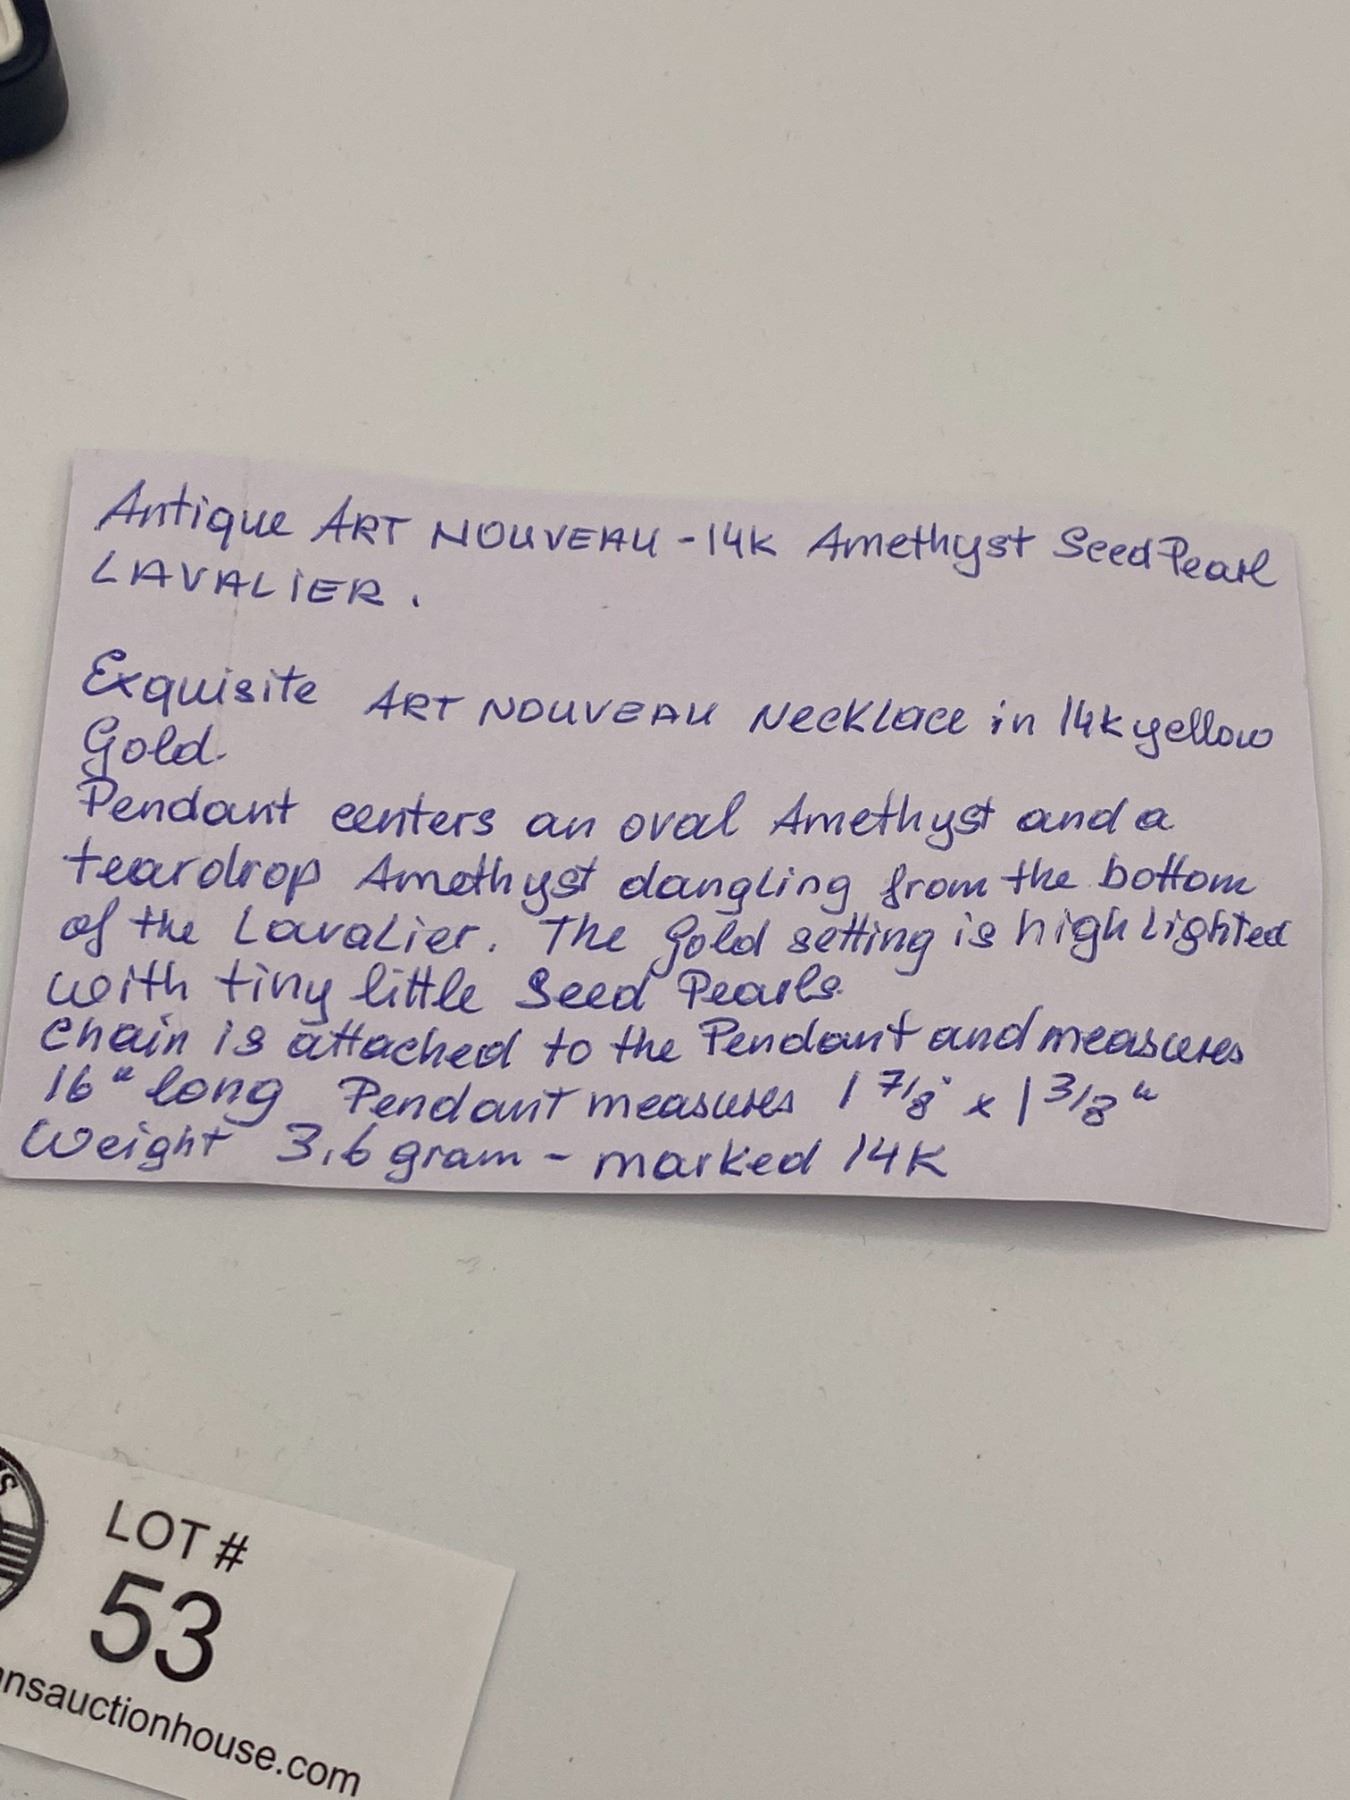 Antique ART NOUVEAU - 14K Amethyst Seed Pearl
LAVALIER.
Exquisite ART NOUVEAU Necklace in 14k yellow
Gold.
Pendant centers an oval Amethyst and a
teardrop Amethyst dangling from the bottom
of the Lavalier. The Gold setting is highlighted
with tiny little Seed Pearls.
Chain is attached to the Pendant and measures
16" long Pendant measures 1 7/8" x 1 3/8"
Weight 3,6 gram - marked 14K
LOT #
53
nsauctionhouse.com